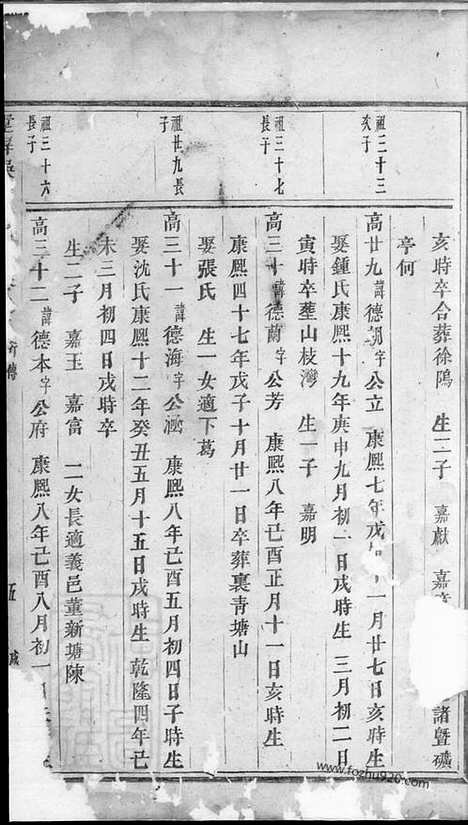 亥時卒合葬徐隖 生二子 嘉獻 嘉 諸暨礦
亭何
祖三十三次子
高廿九 諱德 字公立 康熙七年戊 一月廿七日亥時生
娶鍾氏康熙十九年庚申九月初一日戌時生 三月初二日
寅時卒塟山枝灣 生一子 嘉明
祖三十七長子
高三十 諱德蘭字公芳 康熙八年己酉正月十一日亥時生
康熙四十七年戊子十月廿一日卒葬裏靑塘山
娶張氏 生一女適下葛
祖廿九長子
高三十一 諱德海字公涵 康熙八年己酉五月初四日子時生
娶沈氏康熙十二年癸丑五月十五日戌時生 乾隆四年己
未三月初四日戌時卒
生二子 嘉玉 嘉富 二女長適義邑董新塘陳
祖三十六長子
高三十二 諱德本字公府 康熙八年己酉八月初一
行傳 五
www.fozhu920.com